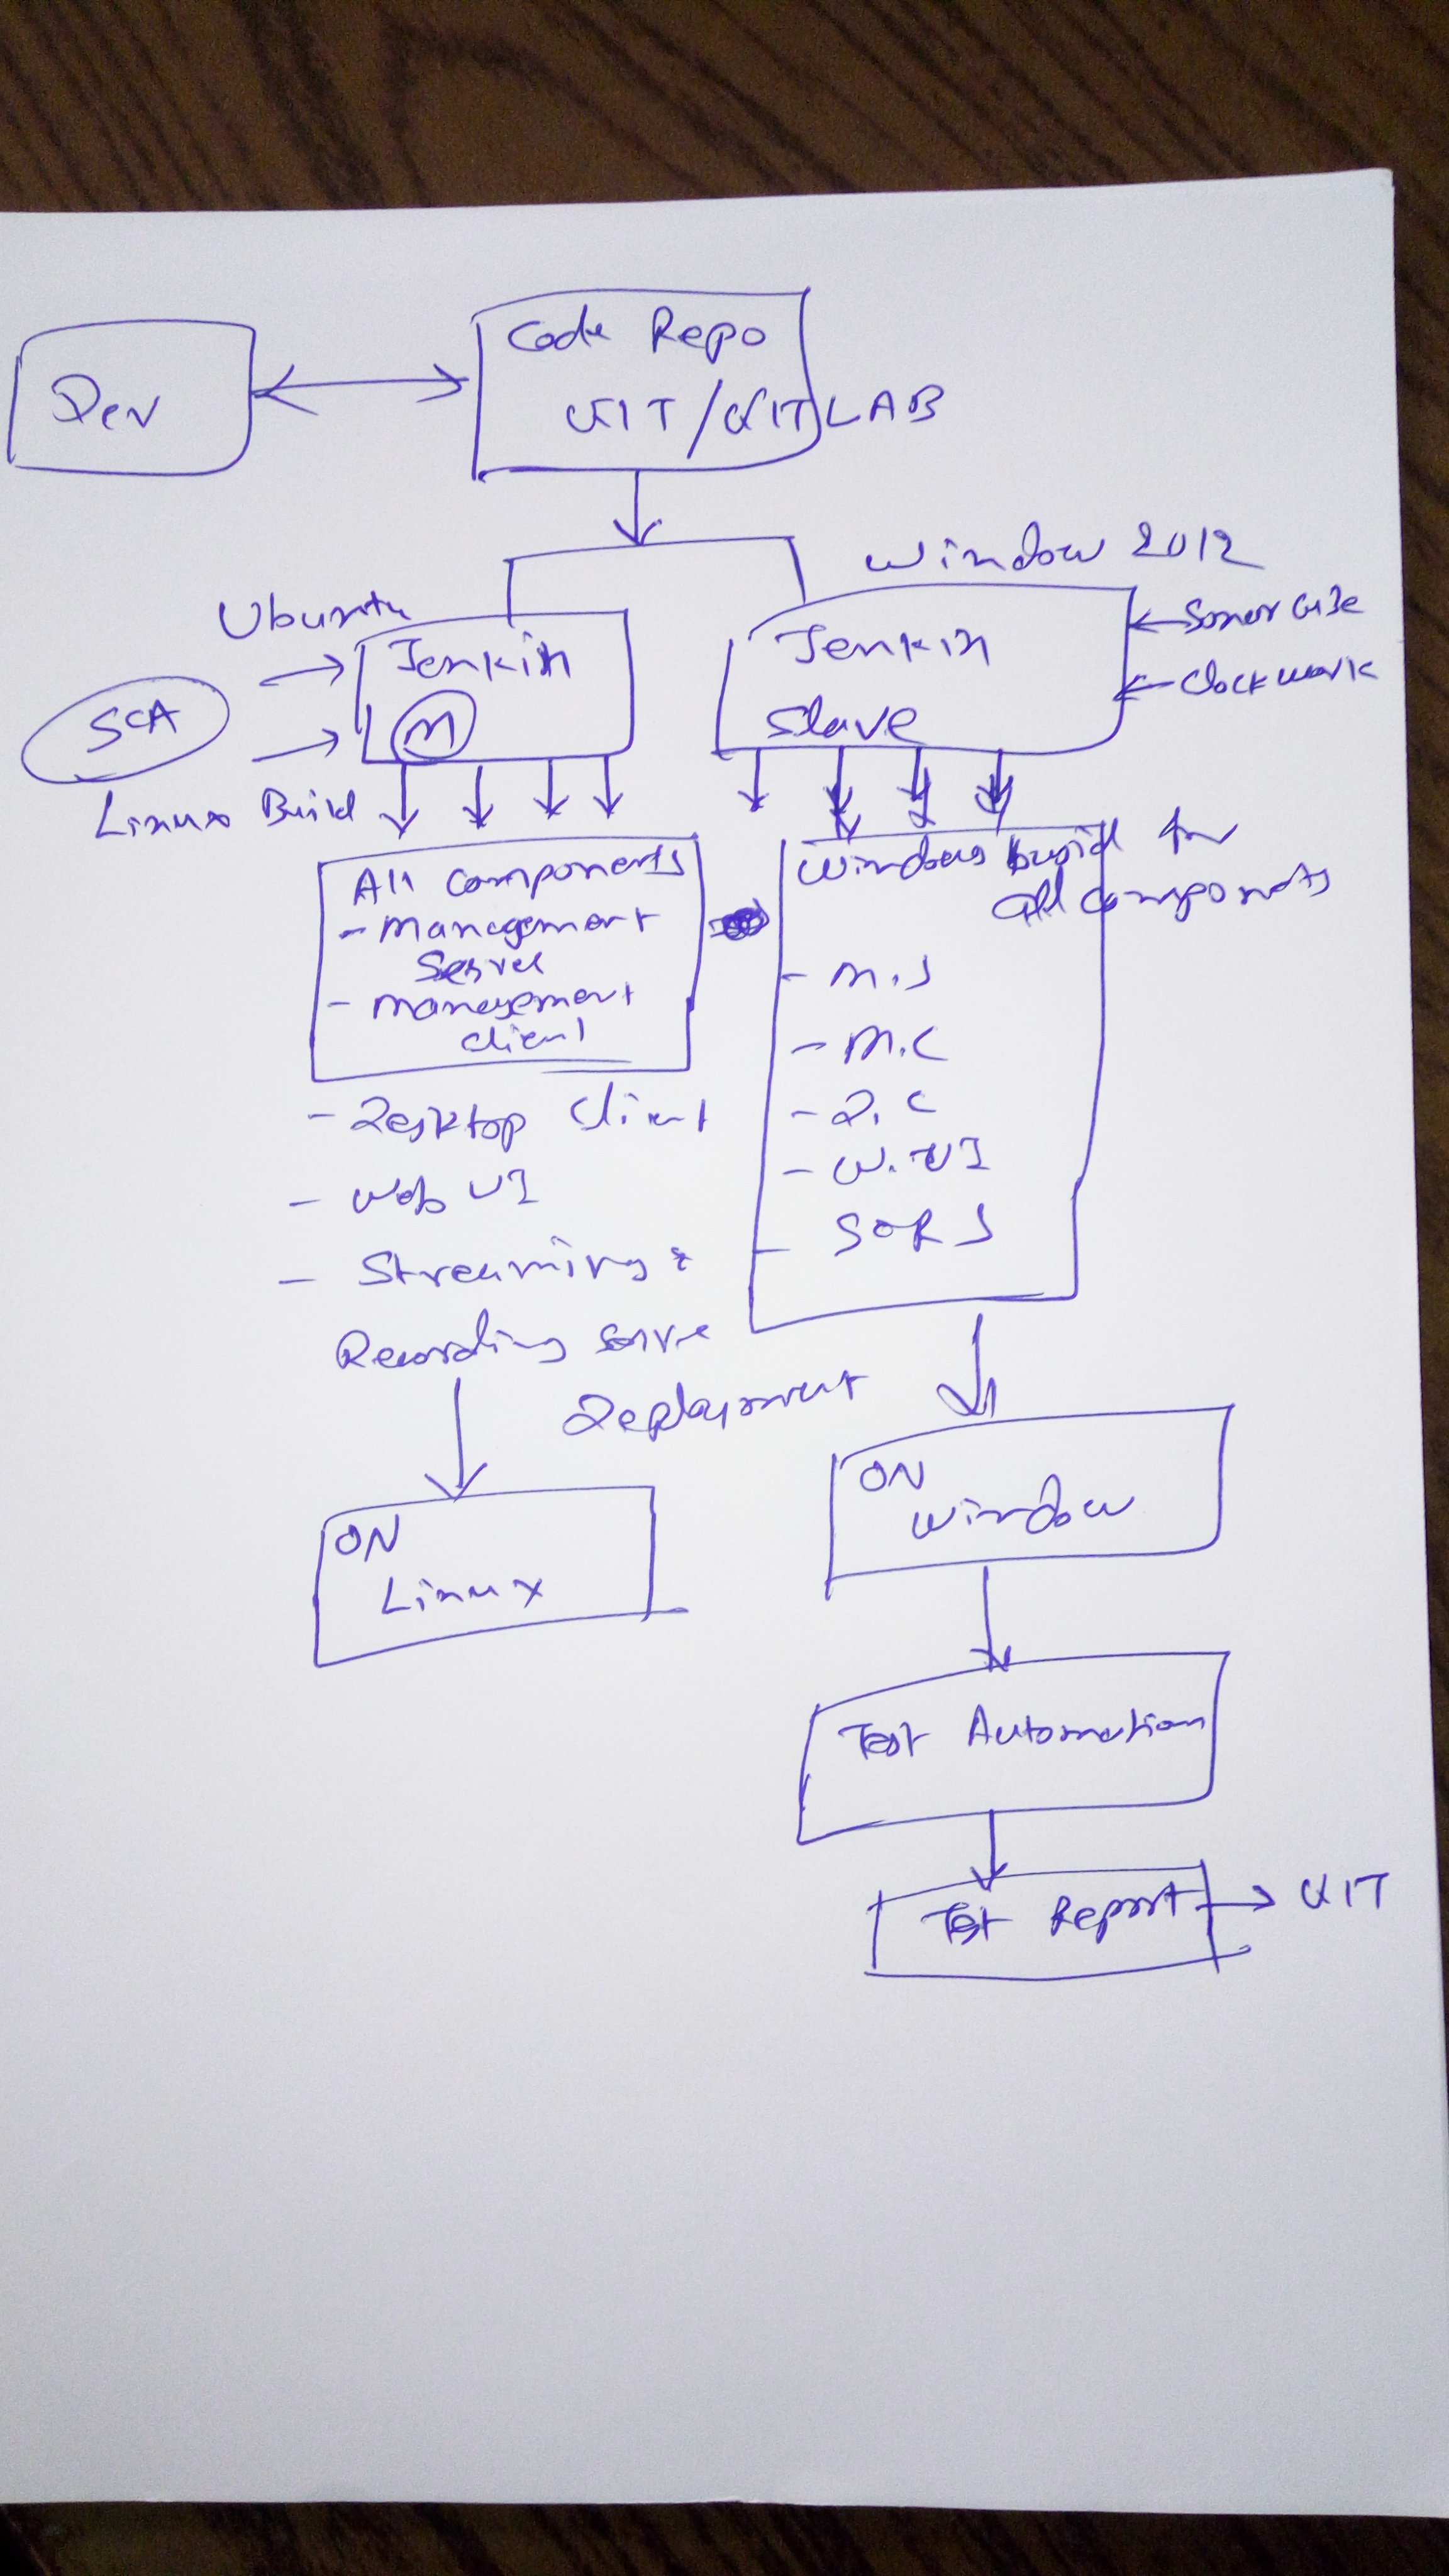 Dev
Code Repo
GIT/GITLAB
Window 2012
Ubuntu
Jenkin
M
SCA
Linux Build
Jenkin
Slave
Sonar Cube
Clockwork
All Components
- Management
Server
- Management
Client
- Desktop Client
- Web UI
- Streaming &
Recording Serve
Windows build for
all components
- M.S
- M.C
- D.C
- W.UI
- S&RS
Deployment
ON
Linux
ON
Window
Test Automation
Test Report
GIT